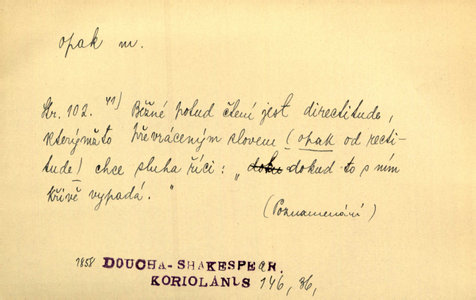 opak m.
Str. 102. 41) Běžné potud čtení jest directitude,
kterýmžto převráceným slovem (opak od recti-
tude) chce sluha říci: „doku dokud to s ním
křivě vypadá.“
(Poznamenání)
1858 DOUCHA-SHAKESPEAR,
KORIOLANUS 146, 36,